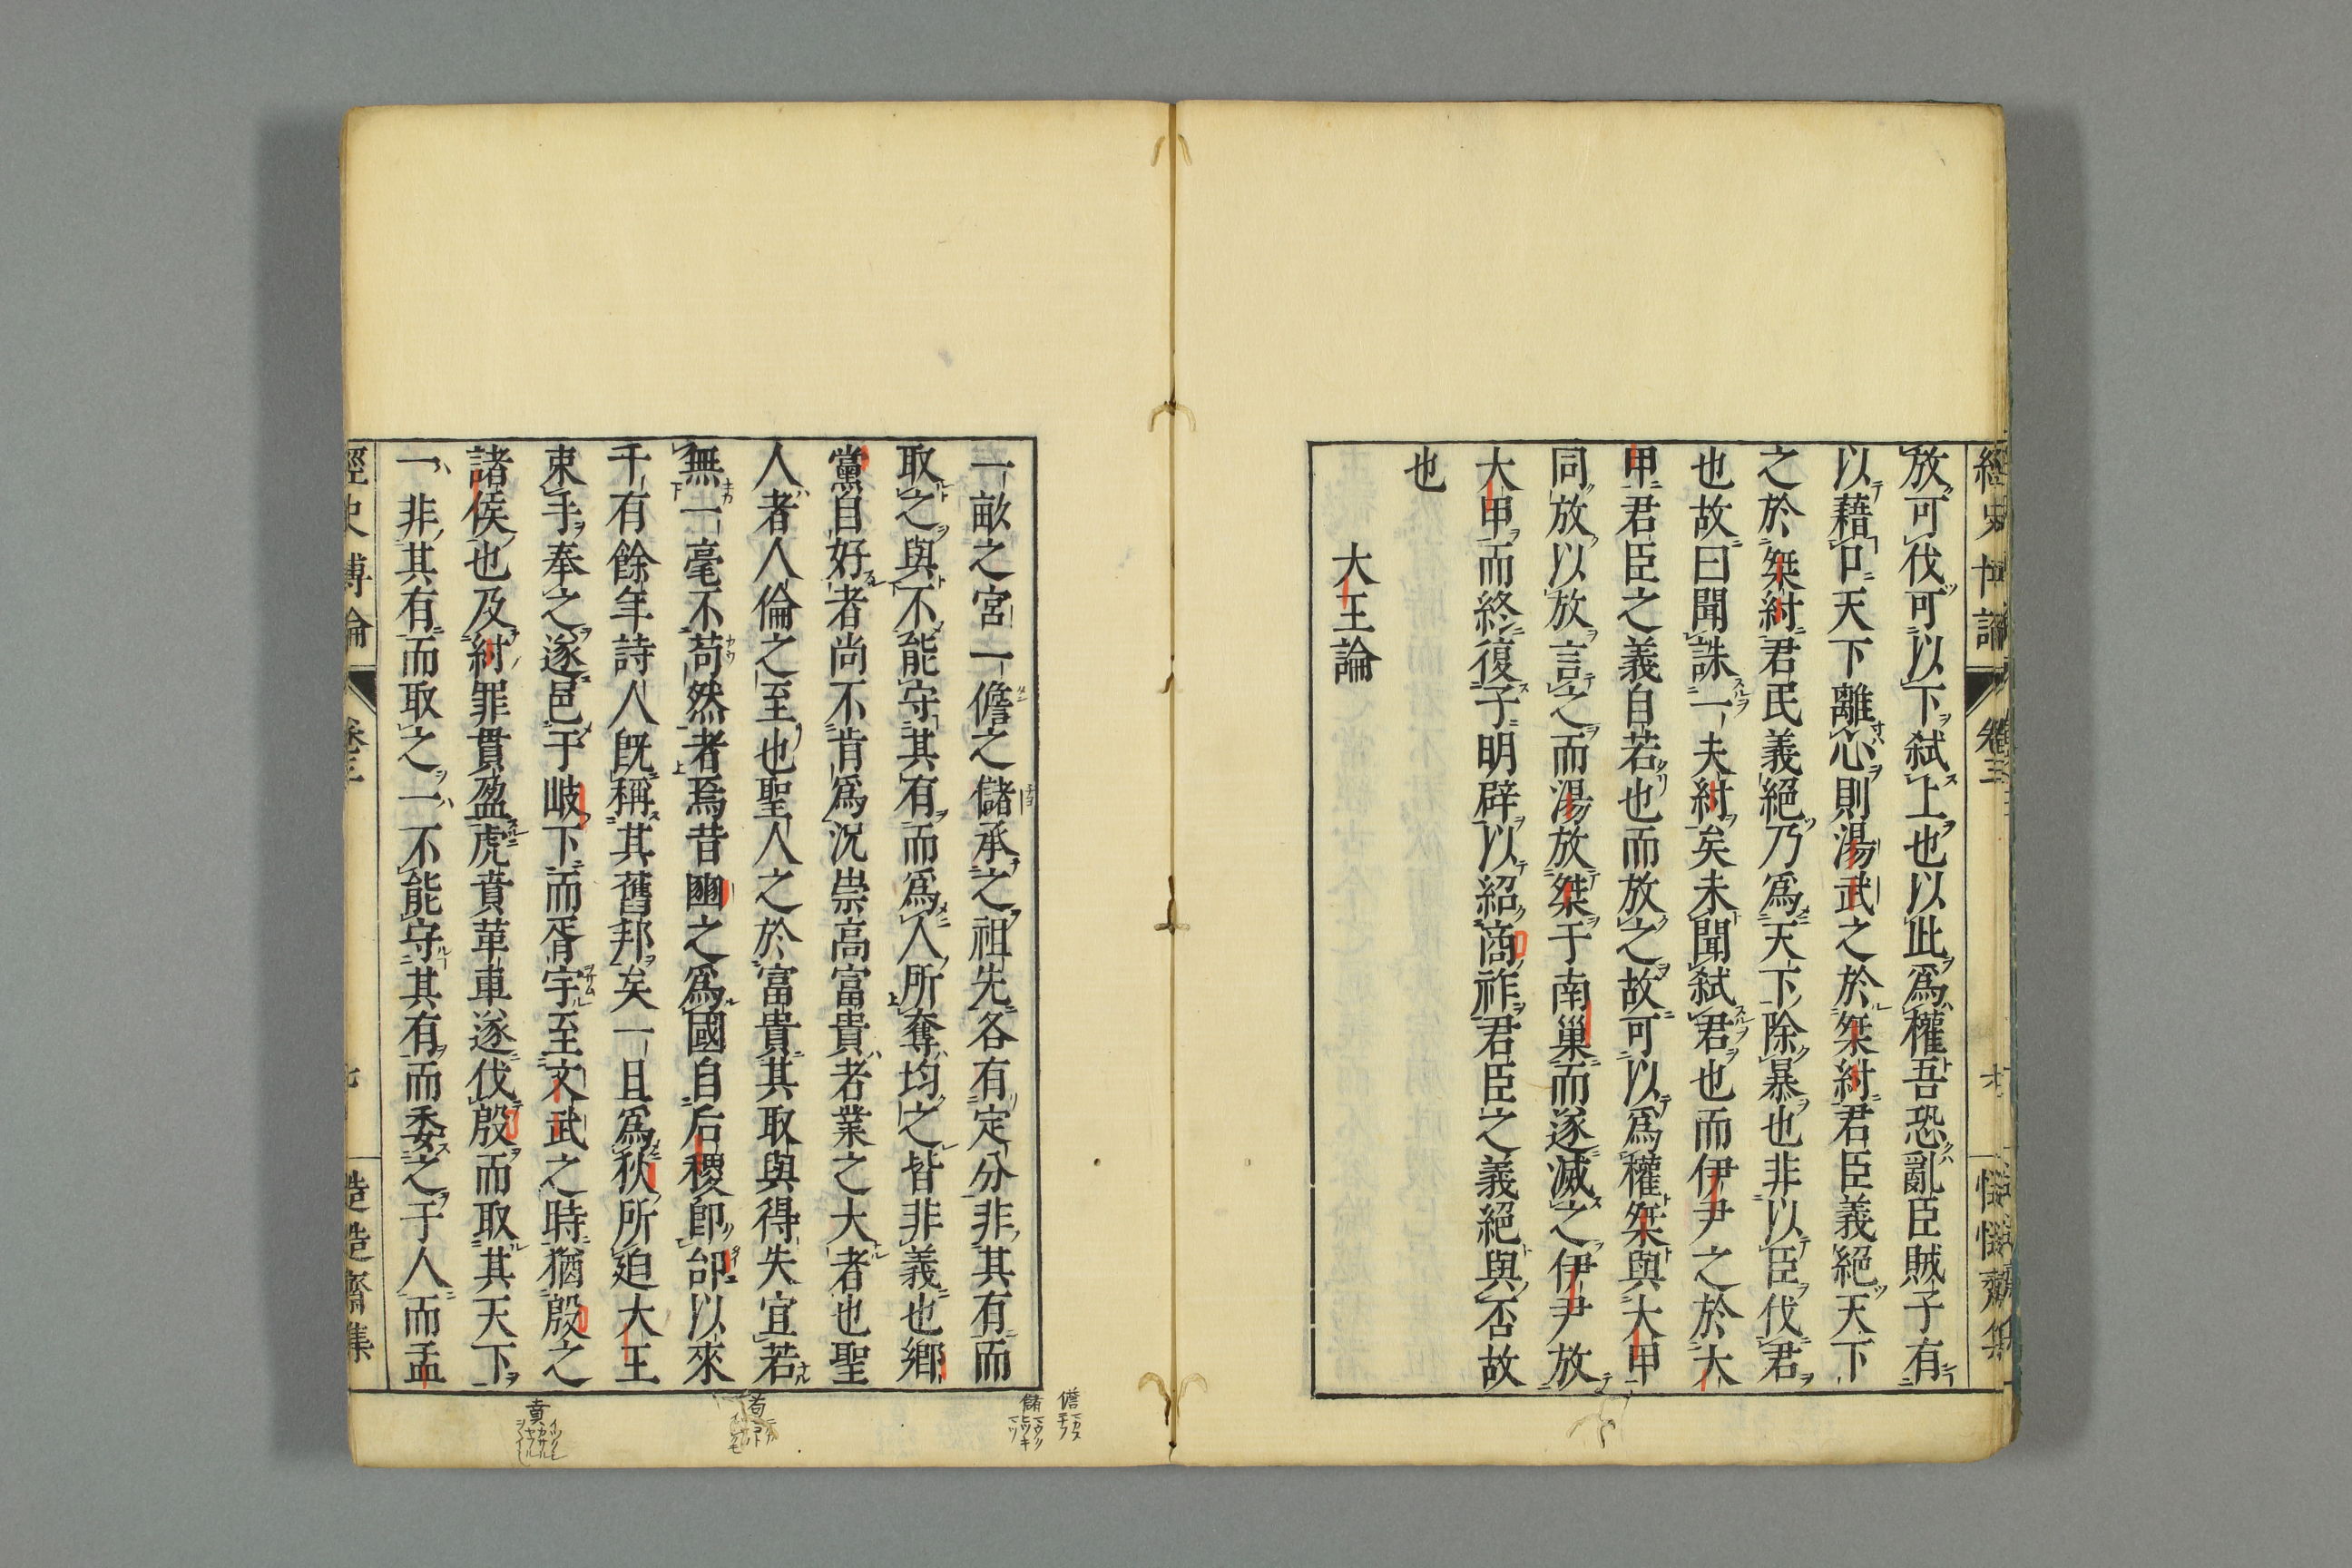 放可伐可以下弑上也以此爲權吾恐亂臣賊子有
以藉口天下離心則湯武之於桀紂君臣義絕天下
之於桀紂君民義絕乃爲天下除暴也非以臣伐君
也故曰聞誅一夫紂矣未聞弑君也而伊尹之於大
甲君臣之義自若也而放之故可以爲權桀與大甲
同放以放言之而湯放桀于南巢而遂滅之伊尹放
大甲而終復子明辟以紹商祚君臣之義絕與否故
也
大王論
一畝之宮一儋之儲承之祖先各有定分非其有而
取之與不能守其有而爲人所奪均之皆非義也鄉
黨自好者尚不肯爲況崇高富貴者業之大者也聖
人者人倫之至也聖人之於富貴其取與得失宜若
無一毫不苟然者焉昔豳之爲國自后稷卽邰以來
千有餘年詩人旣稱其舊邦矣一旦爲狄所廹大王
束手奉之遂邑于岐下而胥宇至文武之時猶殷之
諸侯也及紂罪貫盈虎賁革車遂伐殷而取其天下
一非其有而取之一不能守其有而委之于人而孟
經史博論
卷三
造造齋集
儋
儲
苟
賁